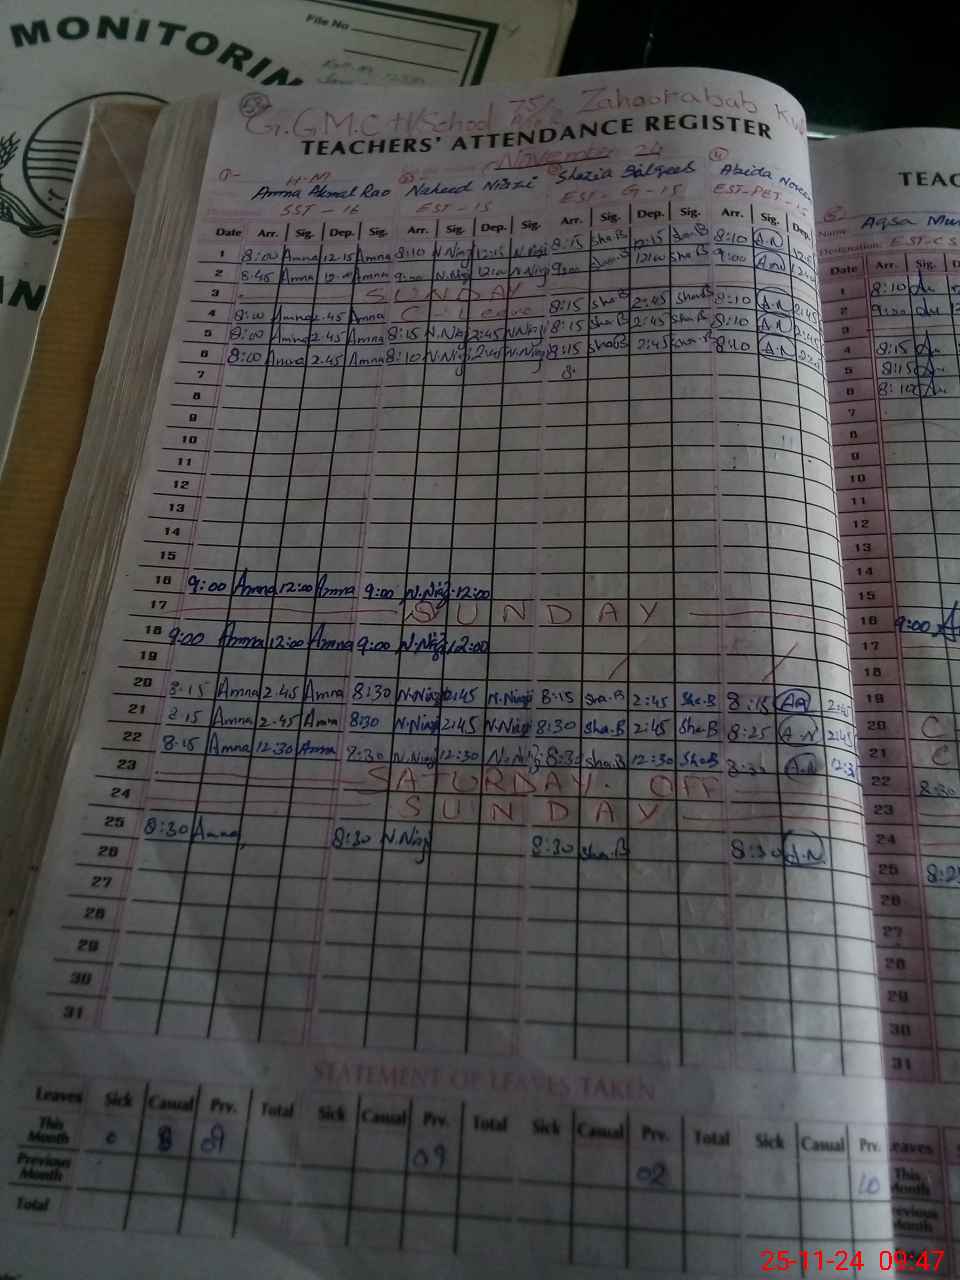 MONITORIN
File No
G.G.M.C H/School 75/ Zahoorabab
TEACHERS' ATTENDANCE REGISTER
TEAC
November 24
H-M
Amna Akmal Rao Naheed Niazi Shazia Balqees Abida Noreen
SST-16 EST-15 EST-G-15 EST-PET-15
Name Aqsa Mun
Designation: EST-CS
Date Arr. Sig. Dep. Sig. Arr. Sig. Dep. Sig. Arr. Sig. Dep. Sig. Arr. Sig. Dep.
Date Arr. Sig. D
1 8:00 Amna 12.15 Amna 8:10 N.Niazi 12:15 N.Niazi 8:15 Sha.B 12:15 Sha.B 8:10 A.N
1 8:10
2 8:45 Amna 12:00 Amna 9:00 N.Niazi 12:00 N.Niazi 9:00 12:00 Sha.B 9:00
2 9:00
3 SUNDAY
3
4 8:00 Amna 2.45 Amna C-Leave 8:15 Sha.B 2:45 Sha.B 8:10 A.N 2:45
4 8:15
5 8:00 Amna 2.45 Amna 8:15 N.Niazi 2:45 N.Niazi 8:15 Sha.B 2:45 Sha.B 8:10 A.N 2:45
5 8:15
6 8:00 Amna 2.45 Amna 8:10 N.Niazi 2:45 N.Niazi 8:15 Sha.B 2:45 Sha.B 8:10 A.N
6 8:10
7 8:
7
8
8
9
9
10
10
11
11
12
12
13
13
14
14
15
15
16 9:00 Amna 12:00 Amna 9:00 N.Niazi 12:00
16 9:00
17 SUNDAY
17
18 9:00 Amna 12:00 Amna 9:00 N.Niazi 12:00
18
19
19
20 8:15 Amna 2.45 Amna 8:30 N.Niazi 2:45 N.Niazi 8:15 Sha.B 2:45 Sha.B 8:15 AN 2:45
20 C
21 8:15 Amna 2.45 Amna 8:30 N.Niazi 2:45 N.Niazi 8:30 Sha.B 2:45 Sha.B 8:25 A.N 2:45
21 C
22 8.15 Amna 12:30 Amna 8:30 N.Niazi 12:30 N.Niazi 8:30 Sha.B 12:30 Sha.B 8:30 A.N 12:3
22 8:30
23 SATURDAY. OFF
23
24 SUNDAY
24
25 8:30 Amna 8:30 N.Niazi 8:30 Sha.B 8:30 A.N
25 8:25
26
26
27
27
28
28
29
29
30
30
31
31
STATEMENT OF LEAVES TAKEN
Leaves Sick Casual Prv. Total Sick Casual Prv. Total Sick Casual Prv. Total Sick Casual Prv.
Leaves
This Month 0 8 09 09 02 10
This Month
Previous Month
Previous Month
Total
25-11-24 09:47